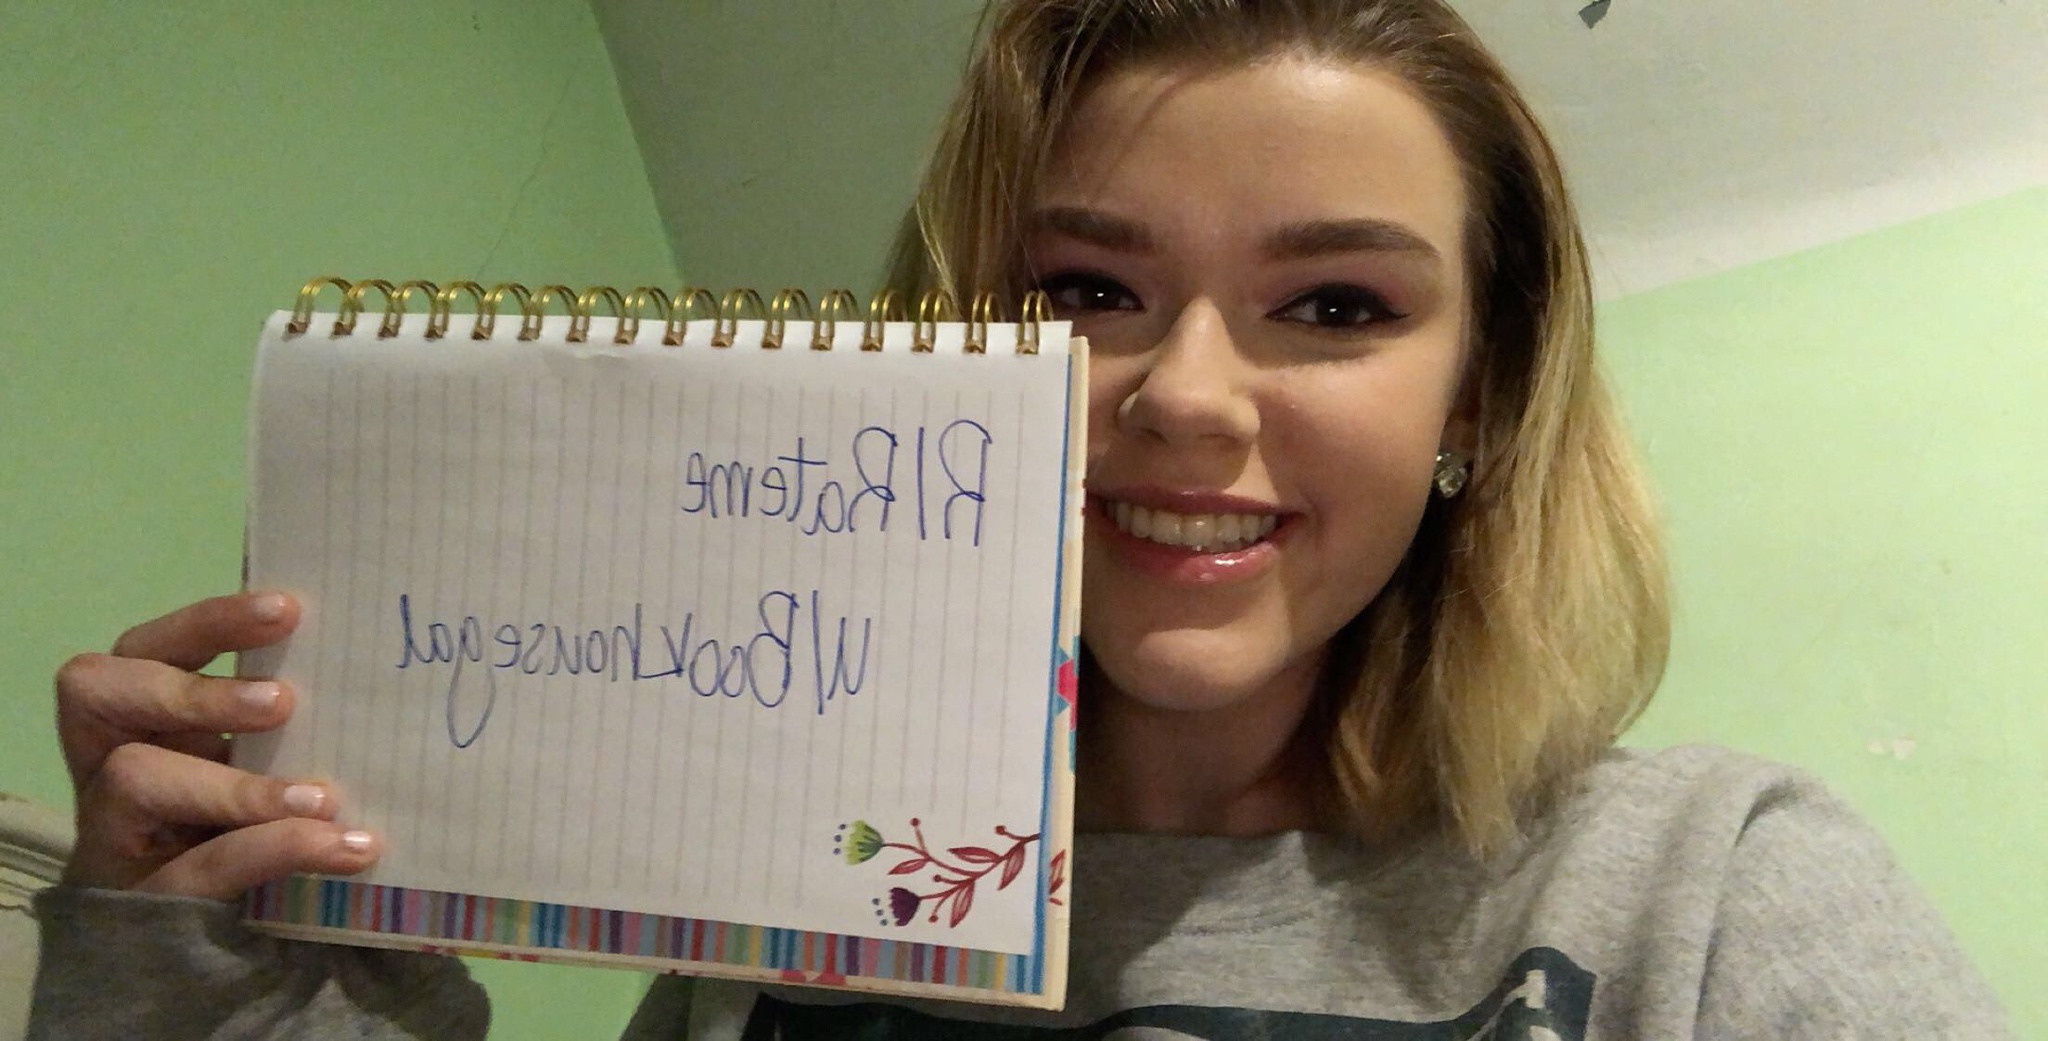 R/Rateme
U/Bookhousegal